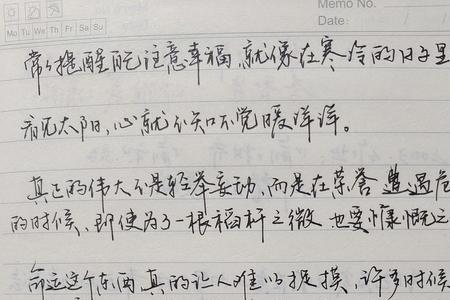 Memo No.
Mo Tu We Th Fr Sa Su
Date: / /
常常提醒自己注意幸福,就像在寒冷的日子里
看见太阳,心就不知不觉暖洋洋。
真正的伟大不是轻举妄动,而是在荣誉遭遇危
的时候,即使为了一根稻秆之微也要慷慨之
命运这个东西真的让人难以捉摸,许多时候